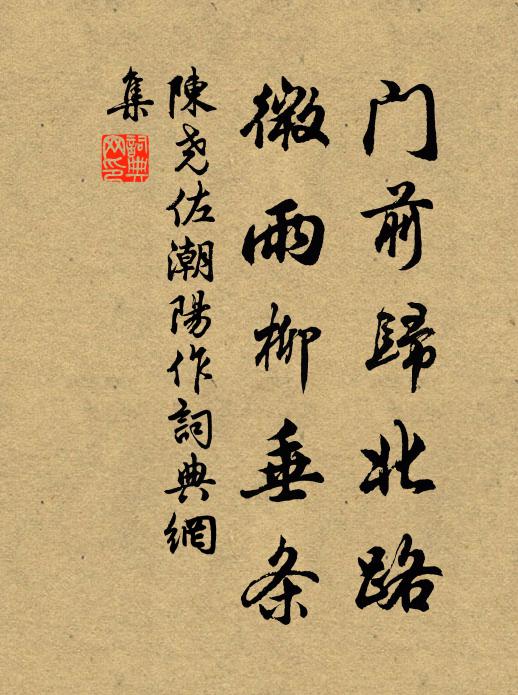 门前歸北路
微雨柳垂条
陳尧佐潮陽作詞典網
集
詞典网印